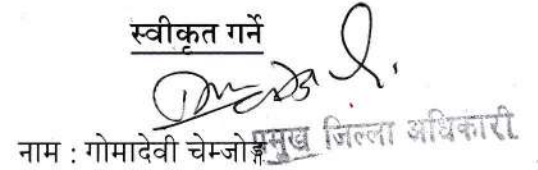 स्वीकृत गर्ने
नाम : गोमादेवी चेम्जोङ
प्रमुख जिल्ला अधिकारी